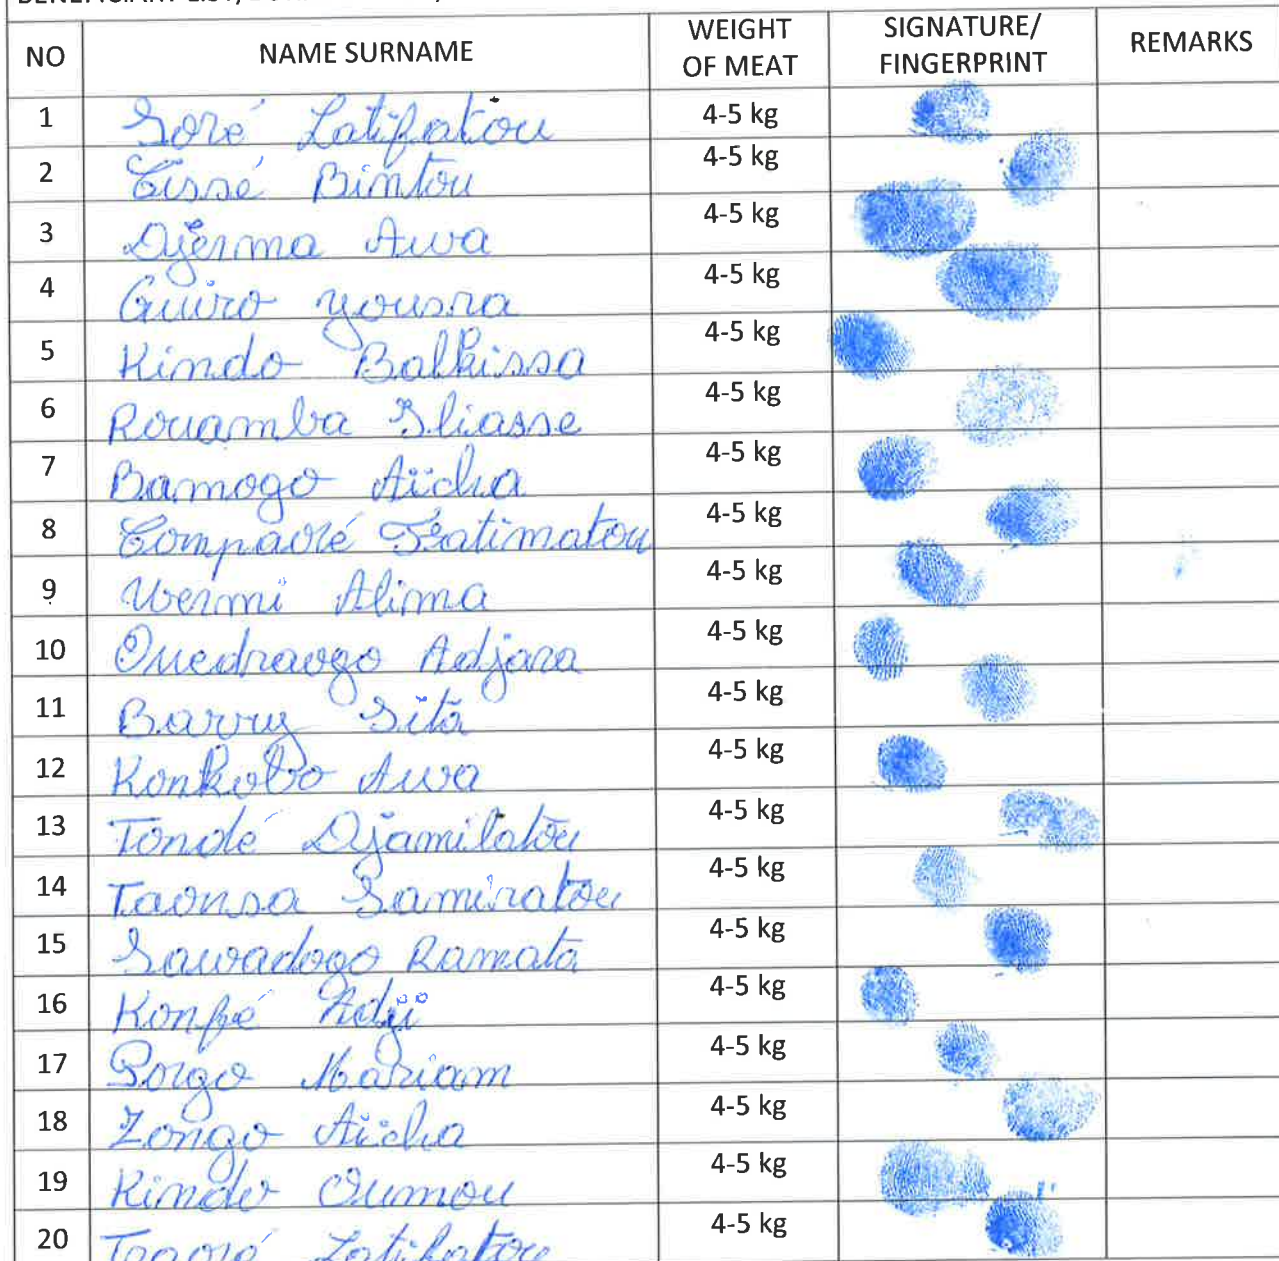 BENEFICIARY LIST,
NO NAME SURNAME WEIGHT OF MEAT SIGNATURE/ FINGERPRINT REMARKS
1 Soré Latifatou 4-5 kg
2 Cissé Bintou 4-5 kg
3 Djerma Awa 4-5 kg
4 Guiro yousra 4-5 kg
5 Kindo Balkissa 4-5 kg
6 Rouamba Iliasse 4-5 kg
7 Bamogo Aïcha 4-5 kg
8 Compaoré Fatimatou 4-5 kg
9 Wermi Alima 4-5 kg
10 Ouedraogo Adjara 4-5 kg
11 Barry Sita 4-5 kg
12 Konkobo Awa 4-5 kg
13 Tondé Djamilatou 4-5 kg
14 Taonsa Samiratou 4-5 kg
15 Sawadogo Ramata 4-5 kg
16 Konfé Adji 4-5 kg
17 Porgo Mariam 4-5 kg
18 Zongo Aïcha 4-5 kg
19 Kindo Oumou 4-5 kg
20 Traoré Latifatou 4-5 kg